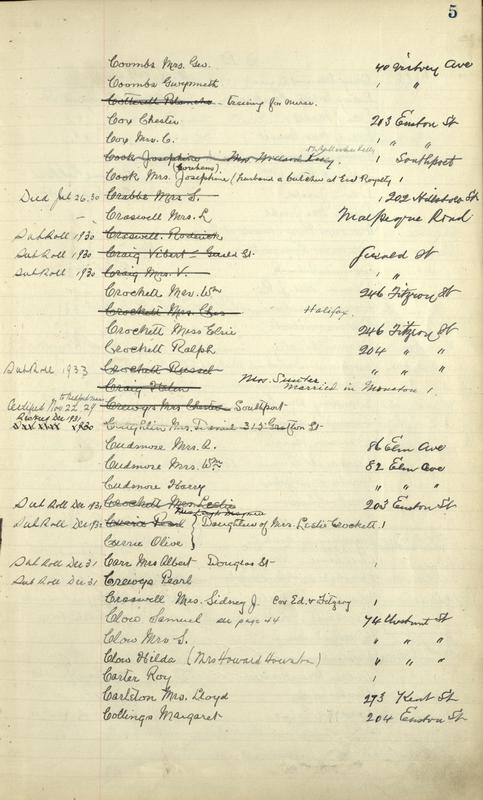 5
Coombs Mrs. Geo. 40 Victory Ave
Coombs Gwynneth 1 "
Cotterell Blanche - training for nurse.
Cox Chester 203 Euston St
Cox Mrs. C. 1 " "
Cook Josephine - Mrs Kelly. 1 Southport
Cook Mrs. Josephine (husband a butcher at East Royalty) 1
Died Feb 26.30 Crabbe Mrs S. 1 202 Hillsboro St
Craswell Mrs. L Malpeque Road
Sub Roll 1930 Craswell. Roderick
Sub Roll 1930 Craig Vibert - Gerald St. Gerald St
Sub Roll 1930 Craig Mrs. V. 1 "
Crockett Mrs. Wm 246 Fitzroy St
Crockett Mrs. Ches Halifax.
Crockett Miss Elsie 246 Fitzroy St
Crockett Ralph 204 " "
Sub Roll 1933 Crockett Russel " " "
Craig Helen Mrs. Sunter. Married in Moncton 1
Nov 22 29 Crewys Mrs Southport
Dec 1931 Coughlin Mrs. Daniel 315 Grafton St
Cudmore Mrs. A. 86 Elm Ave
Cudmore Mrs. Wm 82 Elm Ave
Cudmore Harry " " "
Sub Roll Dec 1931 Crockett Mrs Leslie 203 Euston St
Sub Roll Dec 1931 Pearl } Daughters of Mrs. Leslie Crockett. 1
Currie Olive
Sub Roll Dec 31 Carr Mrs Albert Douglas St 1
Sub Roll Dec 31 Crewys Pearl
Craswell Mrs. Sidney J. Cor Ed. & Fitzroy 1
Clow Samuel see page 44 74 Chestnut St
Clow Mrs S. " " "
Clow Hilda (Mrs Howard Houston) " " "
Carter Roy 1
Carleton Mrs. Lloyd 273 Kent St
Collings Margaret 204 Euston St